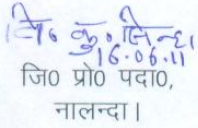 वि० कु० सिन्हा
16.06.11
जि0 प्रो0 पदा0,
नालन्दा।